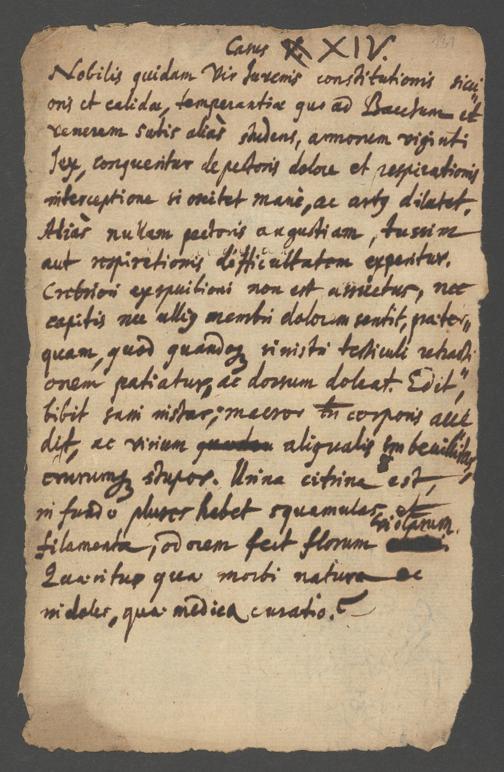 Casus XXIV
Nobilis quidam Vir Juvenis constitutionis sicci
oris et calidae, temperantiae quo ad Bacchum et
venerem satis alias studens, annorum viginti
sex, conqueritur de pectoris dolore et respirationis
interceptione si oscitet mane, ac artus dilatet.
Alias nullam pectoris angustiam, tussim
aut respirationis difficultatem experitur.
Crebriori expuitioni non est assuetus, nec
capitis nec ullius membri dolorem sentit, praeter,,
quam, quod quandoque sinistri testiculi retracti
onem patiatur, ac dorsum doleat. Edit,,
bibit sani instar; macror corporis acce
dit, ac virium aliqualis imbecillitas,
crurumque stupor. Urina citrina est,
in fundo plures habet squamulas, et
filamenta, odorem fert florum violarum.
Quaeritur quae morbi natura ac
indoles, quae medica curatio.